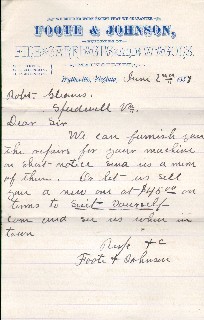 FOOTE & JOHNSON,
Wytheville, Virginia, June 2nd 1887
Robt.
Speedwell Va
Dear Sir
We can furnish you
the repairs for your machine
on short notice send us a mem
of them. Or let us sell
you a new one at $45.00 on
terms to suit yourself
Com and see us when in
town
Resp &c
Foote & Johnson